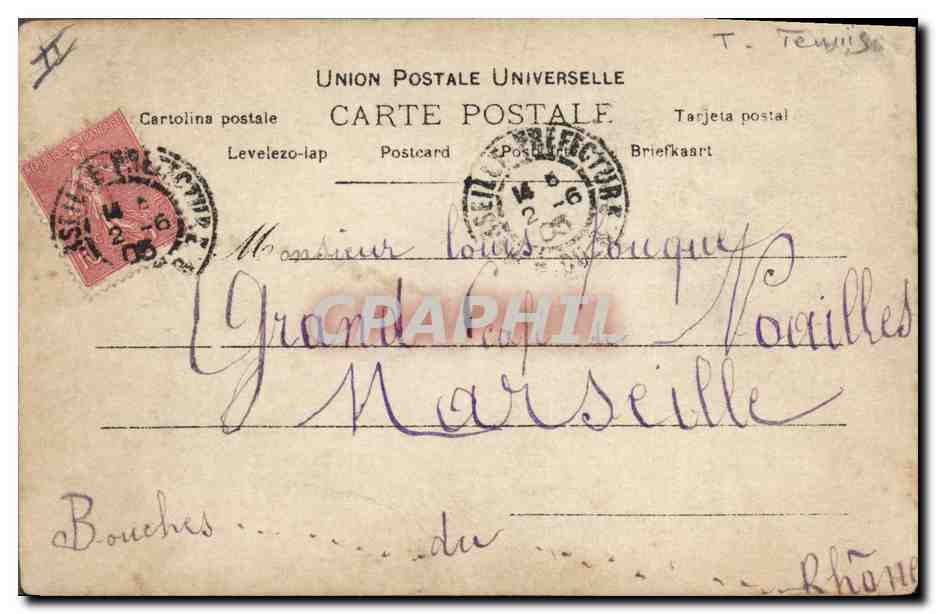 T. Tennis
UNION POSTALE UNIVERSELLE
Cartolina postale CARTE POSTALE Tarjeta postal
Levelezo-lap Postcard Postkarte Briefkaart
SEILLE PREFECTURE
14 5
2 -6
03
SEILLE PREFECTURE
14 5
2 -6
03
Monsieur louis Fouque
CPARAPHIL
Grand Café Noailles
Marseille
Bouches du Rhône